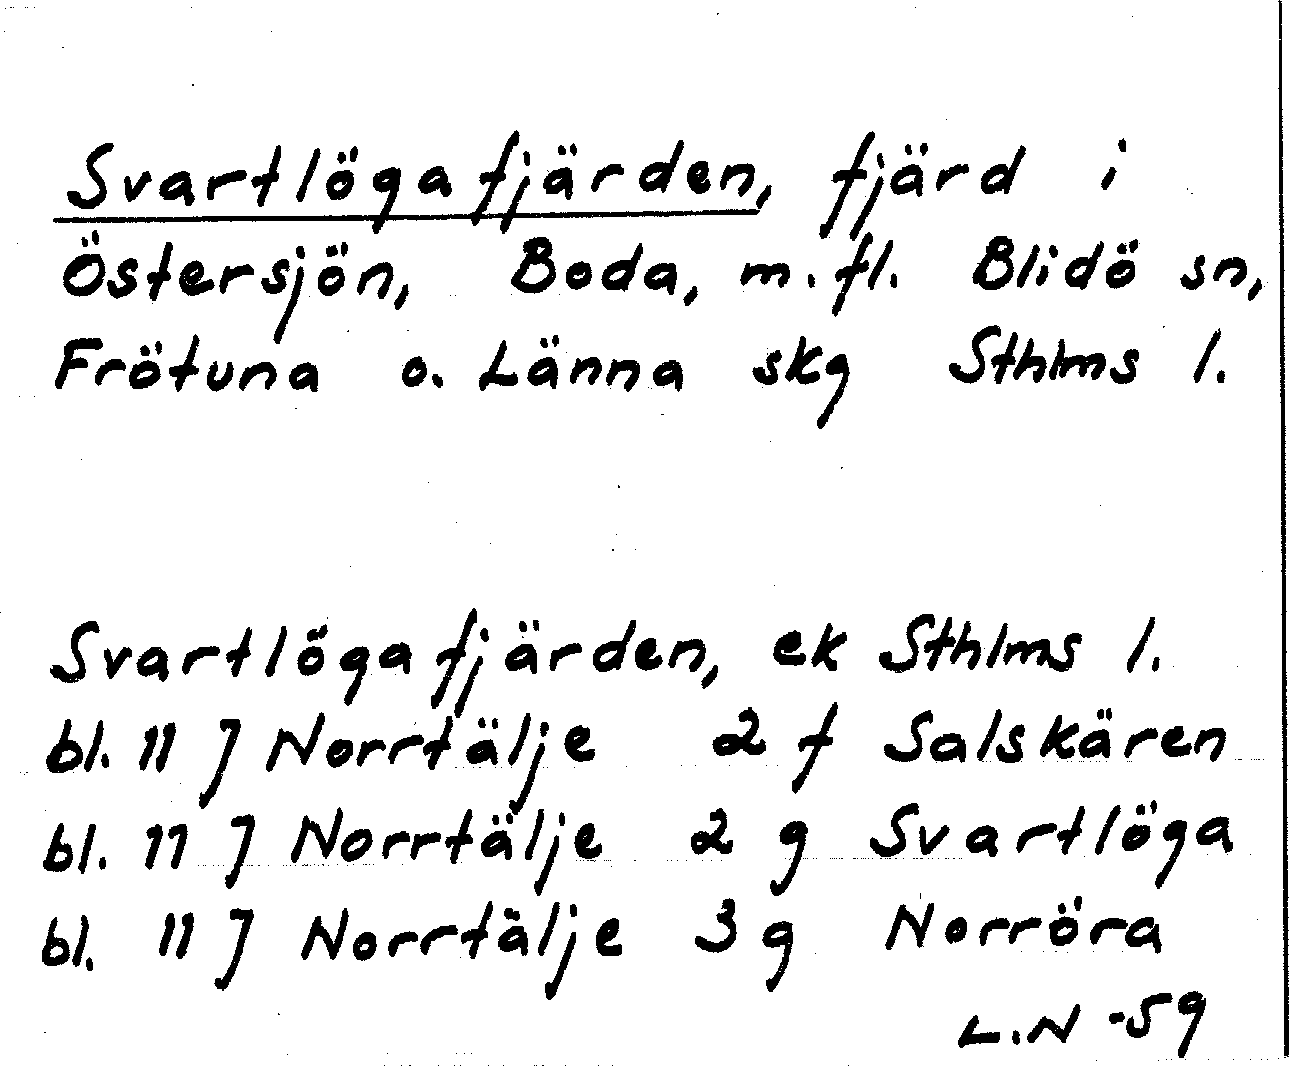 Svartlögafjärden, fjärd i
Östersjön, Boda, m.fl. Blidö sn,
Frötuna o. Länna skg Sthlms l.
Svartlögafjärden, ek Sthlms l.
bl. 11 J Norrtälje 2 f Salskären
bl. 11 J Norrtälje 2 g Svartlöga
bl. 11 J Norrtälje 3 g Norröra
L.N -59